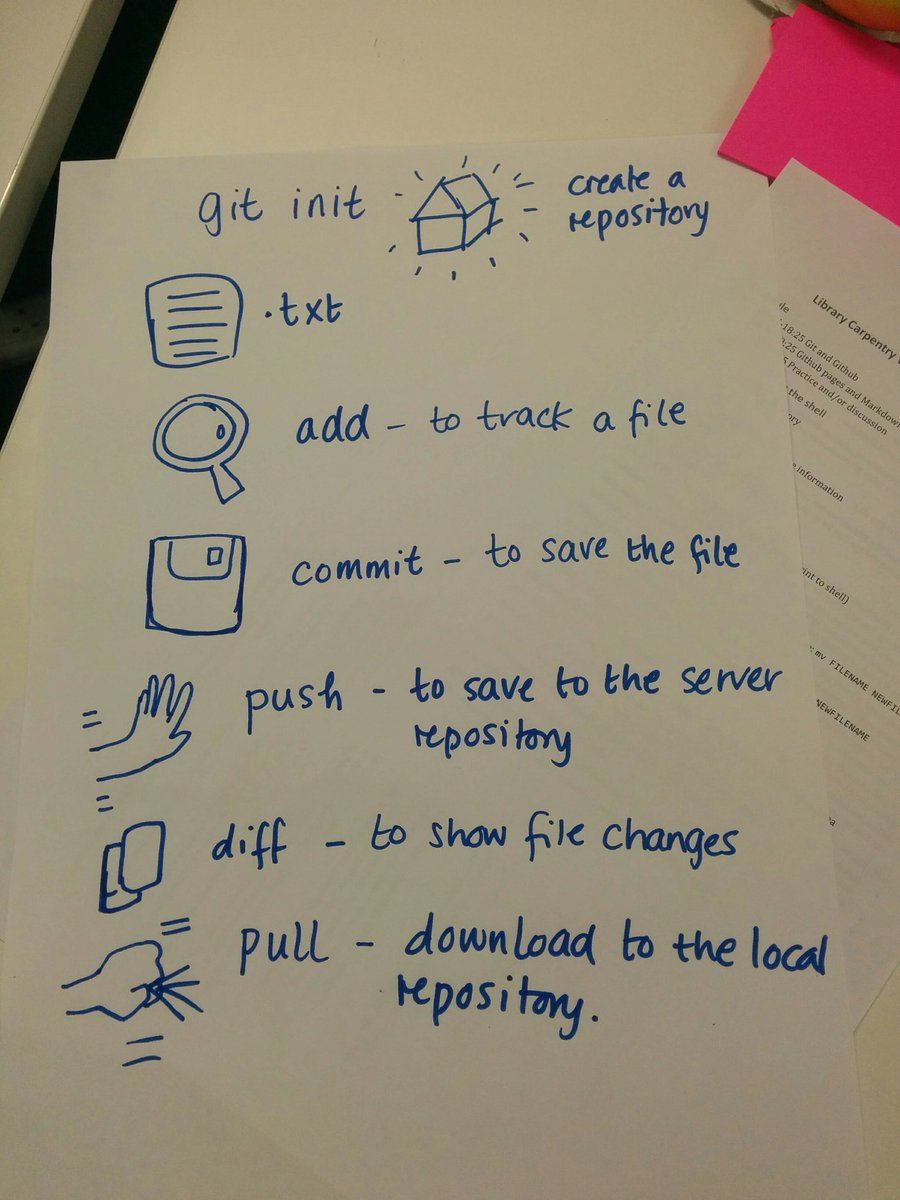 git init
create a
repository
.txt
add - to track a file
commit - to save the file
push - to save to the server
repository
diff - to show file changes
pull - download to the local
repository.
Library Carpentry
18:25 Git and Github
:25 Github pages and Markdown
5 Practice and/or discussion
the shell
information
int to shell)
mv FILENAME NEWFIL
NEWFILENAME